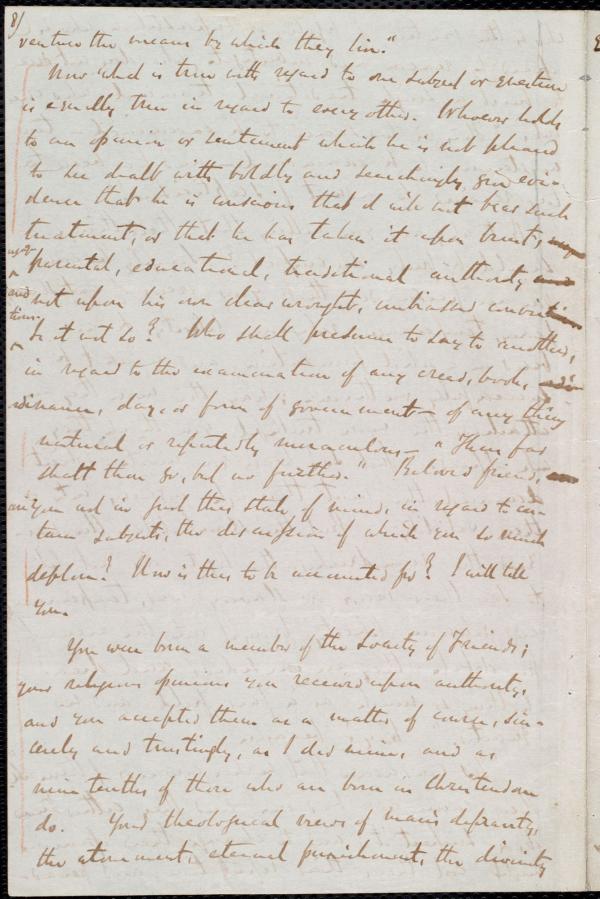 8/
venture the means by which they live."
Now what is true with regard to one subject or question
is equally true in regard to every other. Whoever holds
to an opinion or sentiment which he is not pleased
to see dealt with boldly and searchingly, gives evi-
dence that he is conscious that it will not bear such
treatment, or that he has taken it upon trust,
upon parental, educational, traditional authority,
and not upon his own clear-wrought, unbiassed convic-
tions. Is it not so? Who shall presume to say to another,
in regard to the examination of any creed, book,
ordinance, day, or form of government—of any thing
natural or reputedly miraculous—"Thus far
shalt thou go, but no further." Beloved friend,
are you not in just this state of mind, in regard to cer-
tain subjects, the discussion of which you so much
deplore? How is this to be accounted for? I will tell
you.
You were born a member of the Society of Friends;
your religious opinions you received upon authority,
and you accepted them as a matter of course, sin-
cerely and trustingly, as I did mine, and as
nine tenths of those who are born in Christendom
do. Your theological views of man's depravity,
the atonement, eternal punishment, the divinity